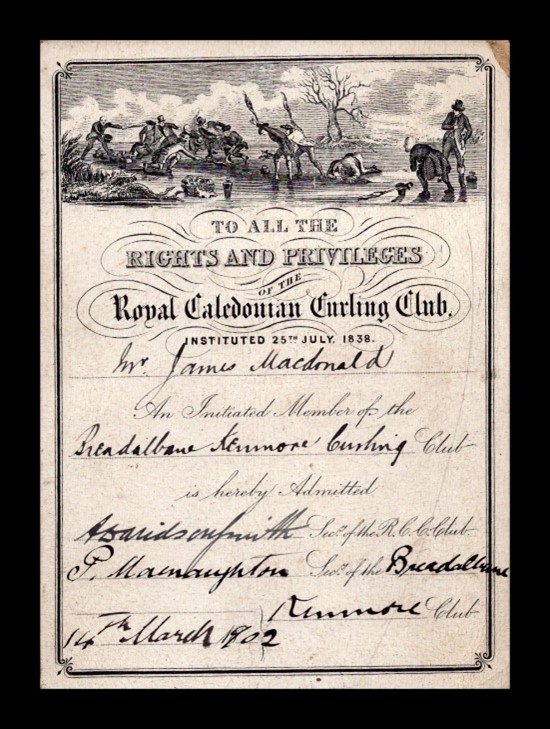 TO ALL THE
RIGHTS AND PRIVILEGES
OF THE
Royal Caledonian Curling Club.
INSTITUTED 25TH JULY, 1838.
Mr. James Macdonald
An Initiated Member of the
Breadalbane Kenmore Curling Club
is hereby Admitted
A Davidson Smith Secy. of the R.C.C. Club.
P. Macnaughton Secy. of the Breadalbane
Kenmore Club
14th March 1902